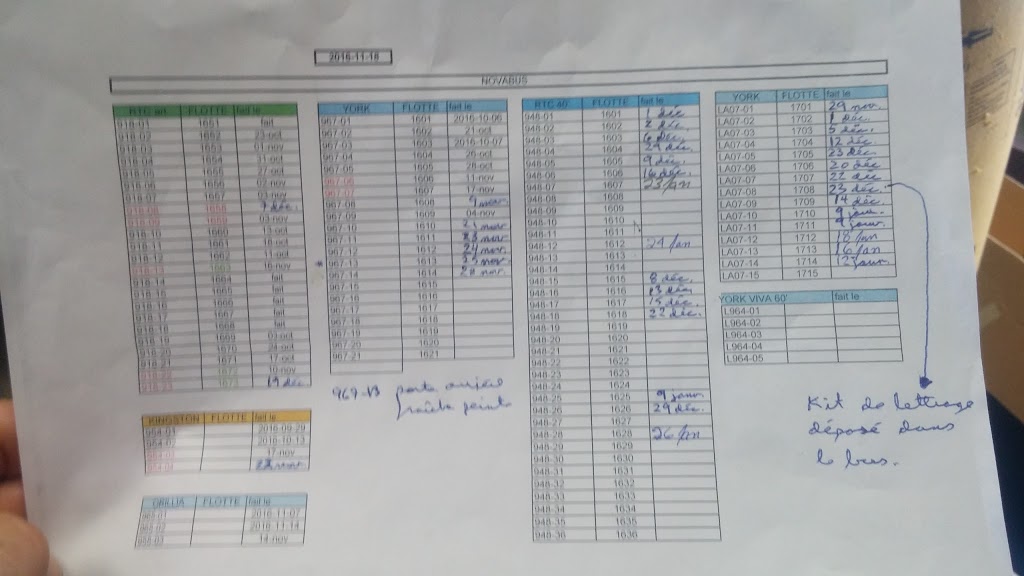 2016-11-16
NOVABUS
RTC art FLOTTE fait le
fait
01-nov
918-04 1654 31-oct
918-05 1655 27-oct
918-06 1656 02-nov
918-07 1657
7 déc.
03-nov
918-10 1660
918-11 1661 18-oct
918-12 1662 11-oct
16-nov
918-14 fait
918-15 fait
918-16 1666 fait
918-17 1667 fait
918-18 1668 fait
918-19 1669
918-20
1671 17-oct
10-nov
19 déc.
KINGSTON FLOTTE fait le
2016-09-29
2016-10-13
17-nov
22 nov.
ORILLIA FLOTTE fait le
965-01 2016-11-07
965-02 2016-11-14
965-03 14-nov
YORK FLOTTE fait le
967-01 1601 2016-10-06
967-02 1602 21-oct
967-03 1603 2016-10-07
967-04 1604 26-oct
967-05 1605 28-oct
1606
1607 17-nov
967-08 1608
967-09 1609 04-nov
967-10 1610 21 nov.
967-11 1611 23 nov.
967-12 1612 24 nov.
967-13 1613
967-14 1614
967-15 1615
967-16 1616
967-17 1617
967-18 1618
967-19 1619
967-20 1620
967-21 1621
967-13 porte arrière
fraîche peinte
RTC 40' FLOTTE fait le
948-01 1601 1 déc
948-02 1602 2 déc.
948-03 1603 6 déc.
948-04 1604 29 déc.
948-05 1605 9 déc.
948-06 1606 16 déc.
948-07 1607 23 jan
948-08 1608
948-09 1609
948-10 1610
948-11 1611
948-12 1612 24 jan
948-13 1613
948-14 1614
948-15 1615 8 déc.
948-16 1616 13 déc.
948-17 1617 15 déc.
948-18 1618 22 déc.
948-19 1619
948-20 1620
948-21 1621
948-22 1622
948-23 1623
948-24 1624
948-25 1625 9 janv.
948-26 1626 29 déc.
948-27 1627
948-28 1628 26 jan
948-29 1629
948-30 1630
948-31 1631
948-32 1632
948-33 1633
948-34 1634
948-35 1635
948-36 1636
YORK FLOTTE fait le
LA07-01 1701 29 nov.
LA07-02 1702 1 déc.
LA07-03 1703 5 déc.
LA07-04 1704 12 déc.
LA07-05 1705 23 déc.
LA07-06 1706 20 déc
LA07-07 1707 22 déc
LA07-08 1708 23 déc.
LA07-09 1709 14 déc.
LA07-10 1710 9 janv.
LA07-11 1711 9 janv.
LA07-12 1712 18 jan
LA07-13 1713 16 jan
LA07-14 1714 12 janv.
LA07-15 1715
YORK VIVA 60' fait le
L964-01
L964-02
L964-03
L964-04
L964-05
Kit de lettrage
déposé dans
le bus.